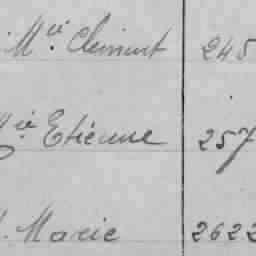 Mie Clément 245
Mie Etienne 257
Marie 2622